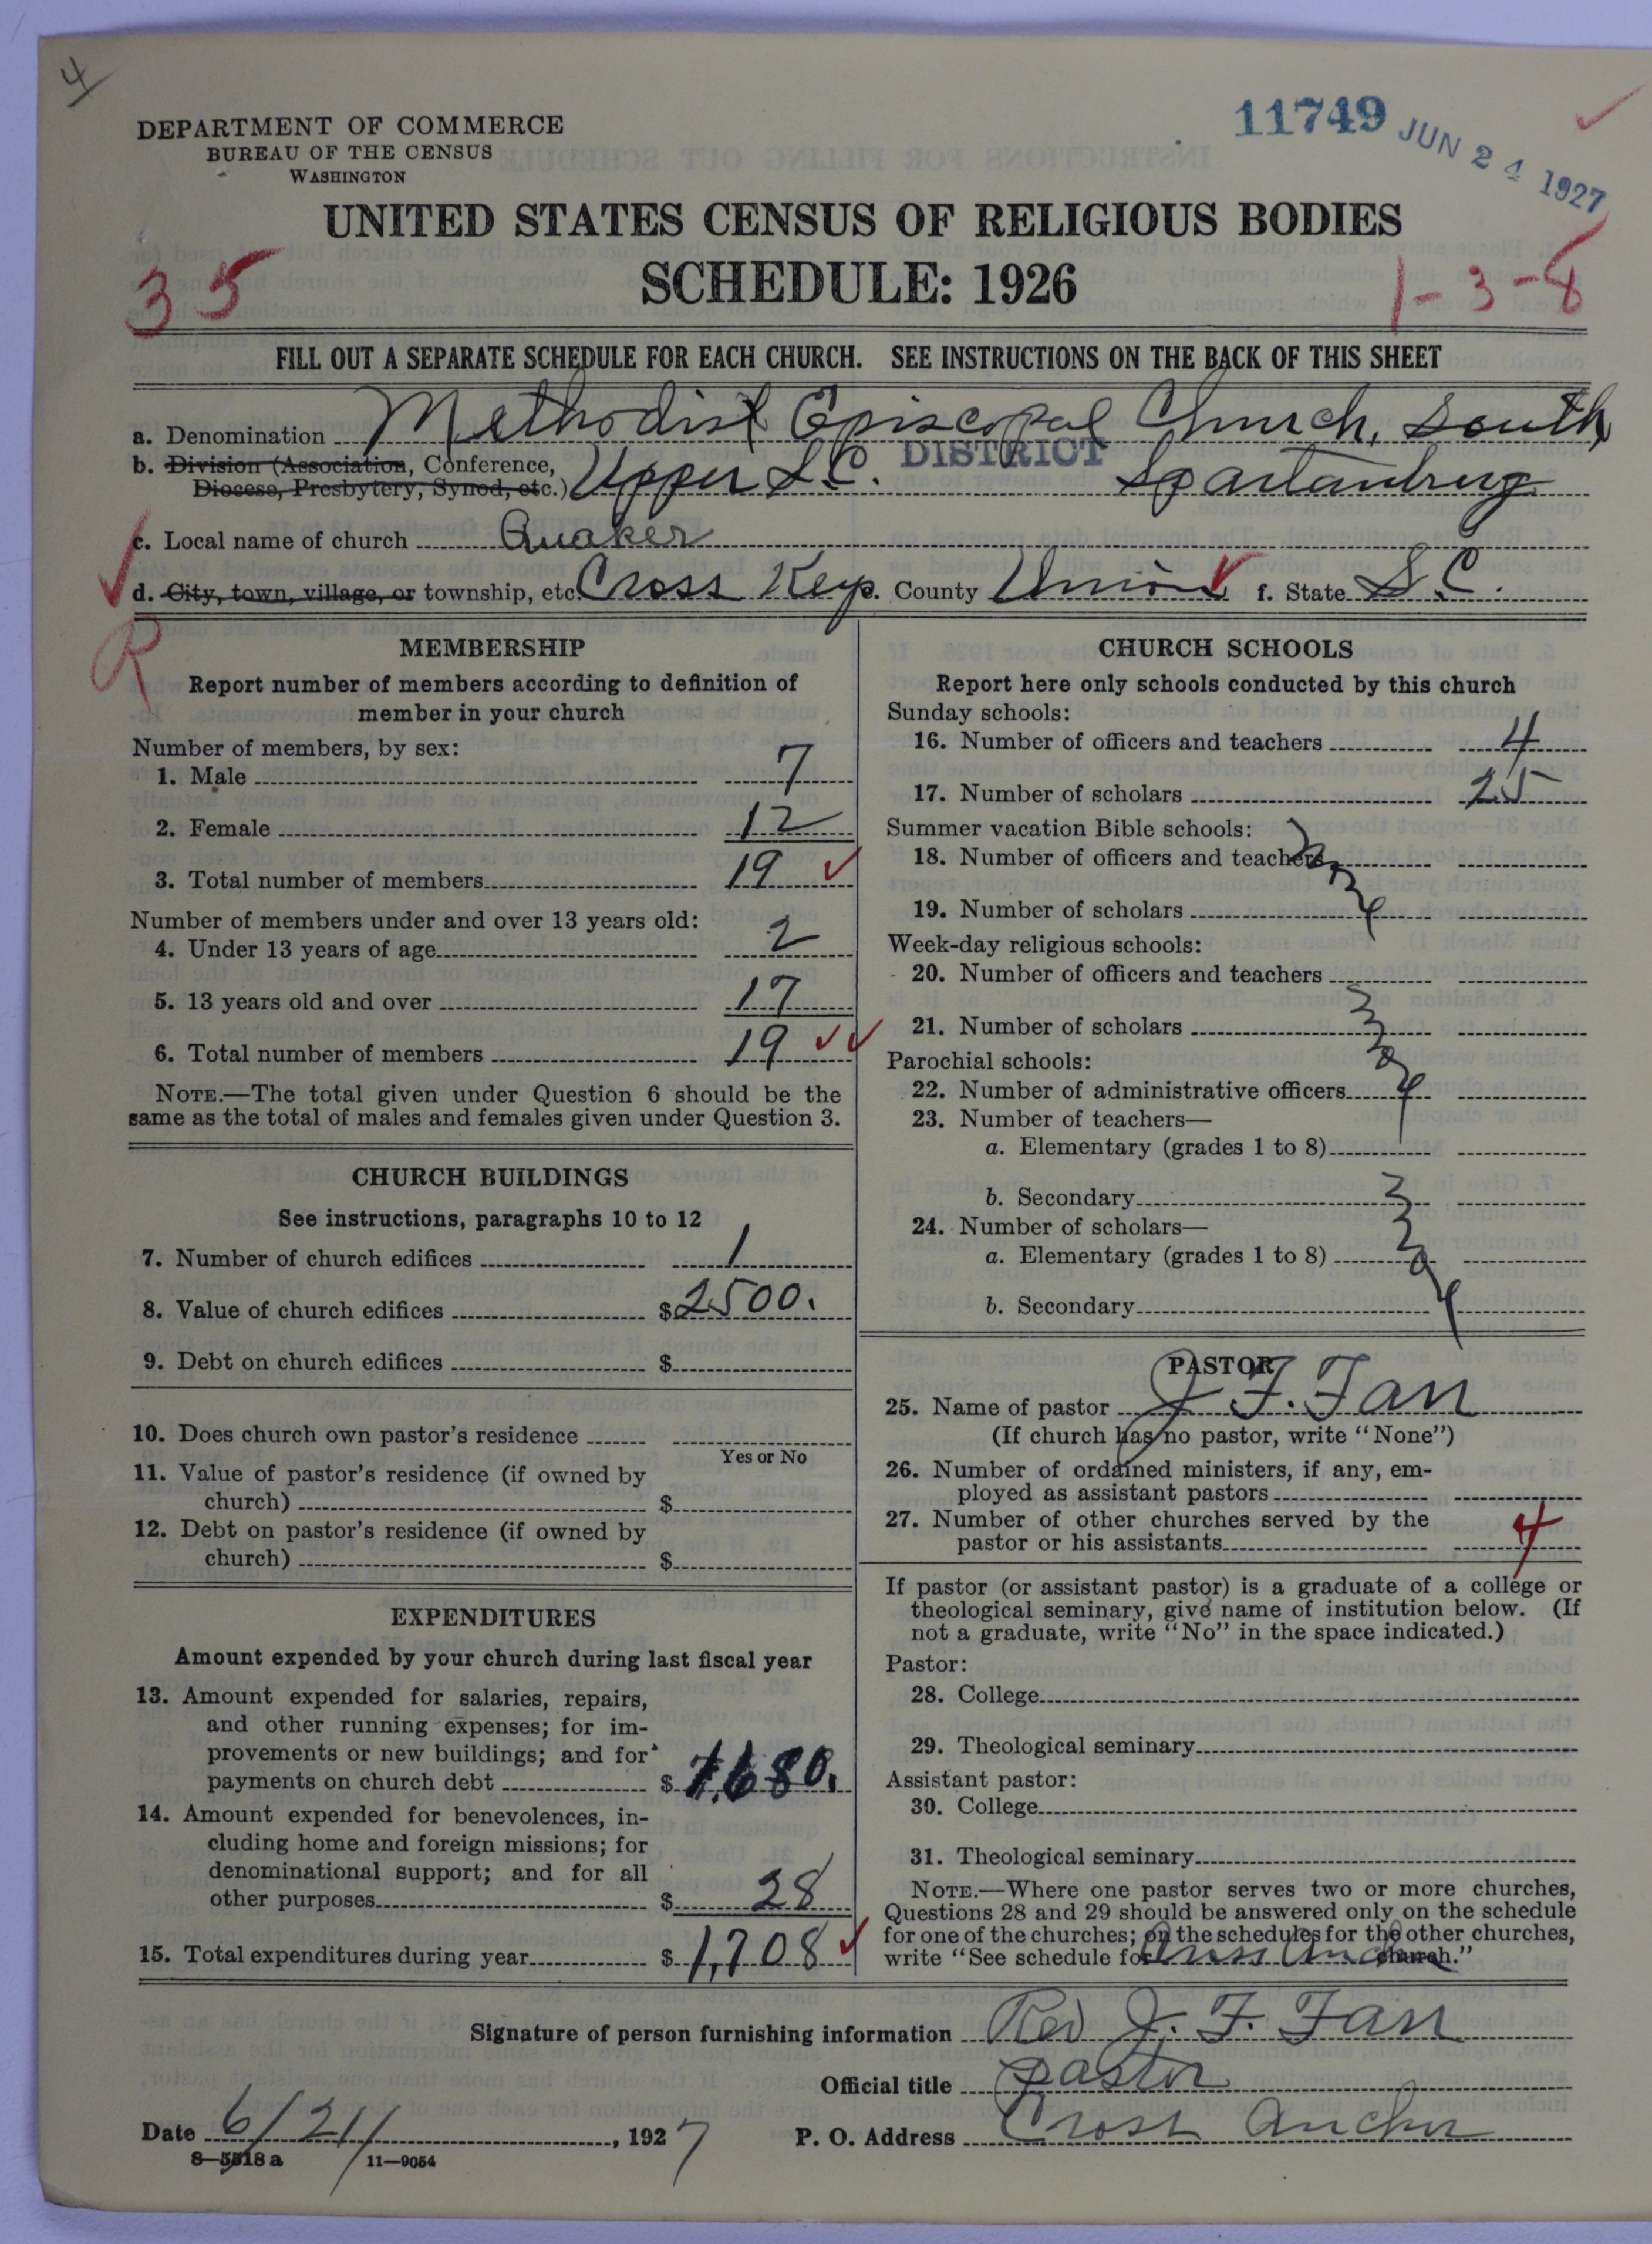 4
DEPARTMENT OF COMMERCE
BUREAU OF THE CENSUS
WASHINGTON
11749 JUN 24 1927
UNITED STATES CENSUS OF RELIGIOUS BODIES
SCHEDULE: 1926
35
1-3-8
FILL OUT A SEPARATE SCHEDULE FOR EACH CHURCH. SEE INSTRUCTIONS ON THE BACK OF THIS SHEET
a. Denomination Methodist Episcopal Church, South
b. Division (Association, Conference, Diocese, Presbytery, Synod, etc.) Upper S.C. DISTRICT Spartanburg
c. Local name of church Quaker
d. City, town, village, or township, etc. Cross Keys. County Union f. State S.C.
R
MEMBERSHIP
Report number of members according to definition of
member in your church
Number of members, by sex:
1. Male 7
2. Female 12
3. Total number of members 19
Number of members under and over 13 years old:
4. Under 13 years of age 2
5. 13 years old and over 17
6. Total number of members 19
NOTE.—The total given under Question 6 should be the
same as the total of males and females given under Question 3.
CHURCH BUILDINGS
See instructions, paragraphs 10 to 12
7. Number of church edifices 1
8. Value of church edifices $2500.
9. Debt on church edifices $
10. Does church own pastor's residence
Yes or No
11. Value of pastor's residence (if owned by
church) $
12. Debt on pastor's residence (if owned by
church) $
EXPENDITURES
Amount expended by your church during last fiscal year
13. Amount expended for salaries, repairs,
and other running expenses; for im-
provements or new buildings; and for
payments on church debt $ 1,680.
14. Amount expended for benevolences, in-
cluding home and foreign missions; for
denominational support; and for all
other purposes $ 28
15. Total expenditures during year $ 1,708
CHURCH SCHOOLS
Report here only schools conducted by this church
Sunday schools:
16. Number of officers and teachers 4
17. Number of scholars 25
Summer vacation Bible schools:
18. Number of officers and teachers
19. Number of scholars
Week-day religious schools:
20. Number of officers and teachers
21. Number of scholars
Parochial schools:
22. Number of administrative officers
23. Number of teachers—
a. Elementary (grades 1 to 8)
b. Secondary
24. Number of scholars—
a. Elementary (grades 1 to 8)
b. Secondary
PASTOR
25. Name of pastor J. F. Farr
(If church has no pastor, write "None")
26. Number of ordained ministers, if any, em-
ployed as assistant pastors
27. Number of other churches served by the
pastor or his assistants 4
If pastor (or assistant pastor) is a graduate of a college or
theological seminary, give name of institution below. (If
not a graduate, write "No" in the space indicated.)
Pastor:
28. College
29. Theological seminary
Assistant pastor:
30. College
31. Theological seminary
NOTE.—Where one pastor serves two or more churches,
Questions 28 and 29 should be answered only on the schedule
for one of the churches; on the schedules for the other churches,
write "See schedule for Cross Anchor church."
Signature of person furnishing information Rev J. F. Farr
Official title pastor
Date 6/21/, 1927 P. O. Address Cross Anchor
8—5518 a 11—9054